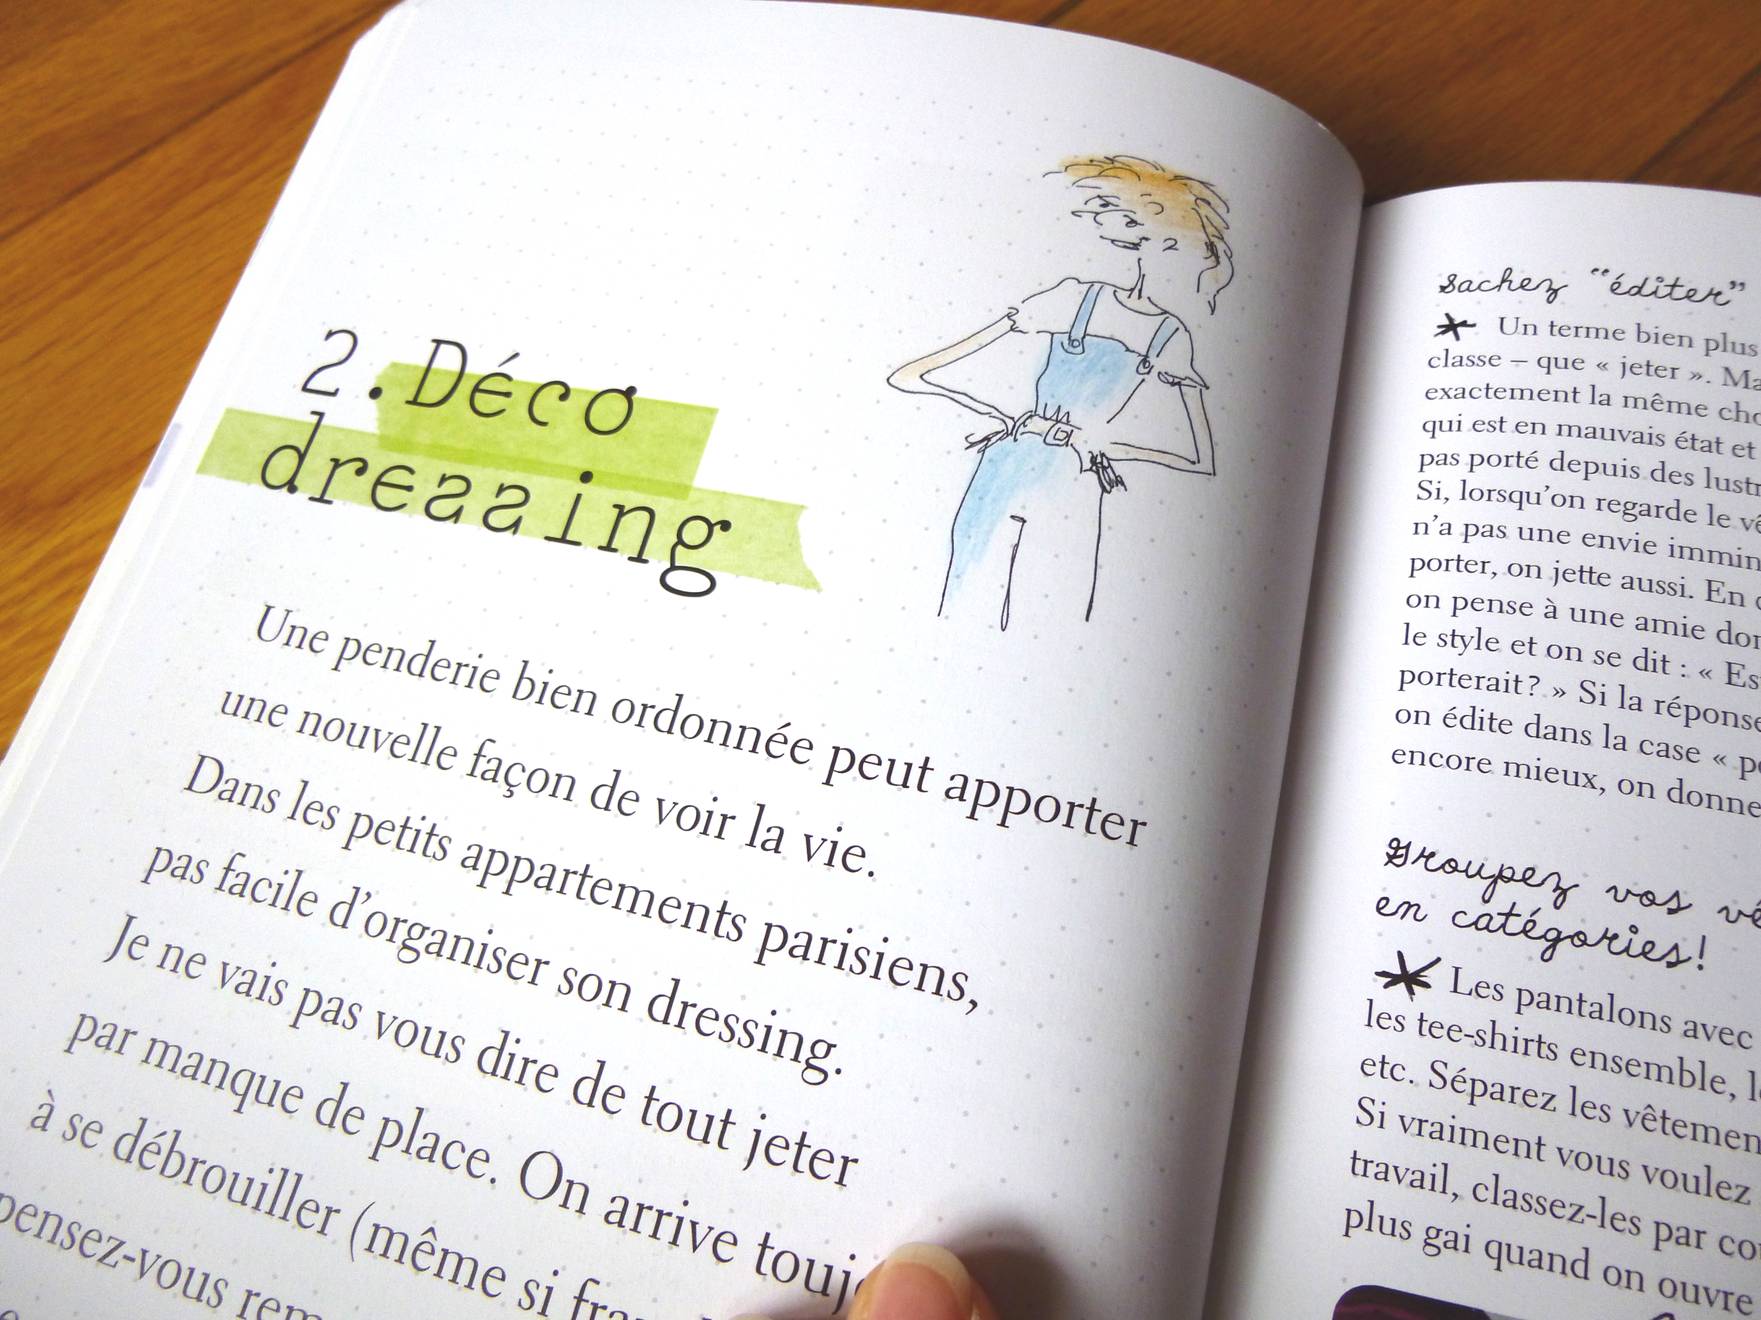 2. Déco
dressing
Une penderie bien ordonnée peut apporter
une nouvelle façon de voir la vie.
Dans les petits appartements parisiens,
pas facile d'organiser son dressing.
Je ne vais pas vous dire de tout jeter
par manque de place. On arrive
à se débrouiller (même si
pensez-vous
Sachez "éditer"
Un terme bien plus
classe – que « jeter ».
exactement la même
qui est en mauvais état et
pas porté depuis des
Si, lorsqu'on regarde le
n'a pas une envie
porter, on jette aussi. En
on pense à une amie
le style et on se dit : «
porterait ? » Si la réponse
on édite dans la case «
encore mieux, on donne
Groupez vos
en catégories !
Les pantalons avec
les tee-shirts ensemble,
etc. Séparez les
Si vraiment vous voulez
travail, classez-les par
plus gai quand on ouvre